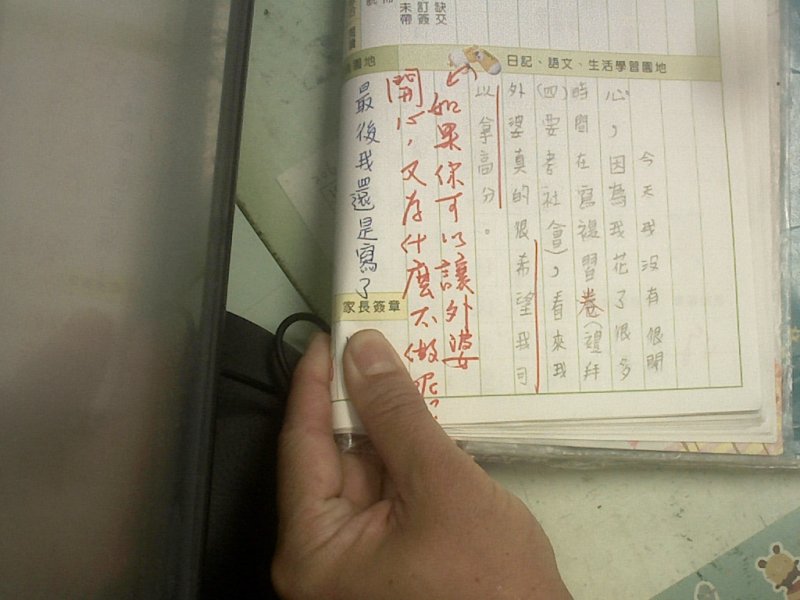 缺交
訂簽
未帶
日記、語文、生活學習園地
今天我沒有很開
心，因為我花了很多
時間在寫複習卷(禮拜
(四)要考社會)，看來我
外婆真的很希望我可
以拿高分。
如果你可以讓外婆
開心，又為什麼不做呢？
園地
最後我還是寫了
家長簽章